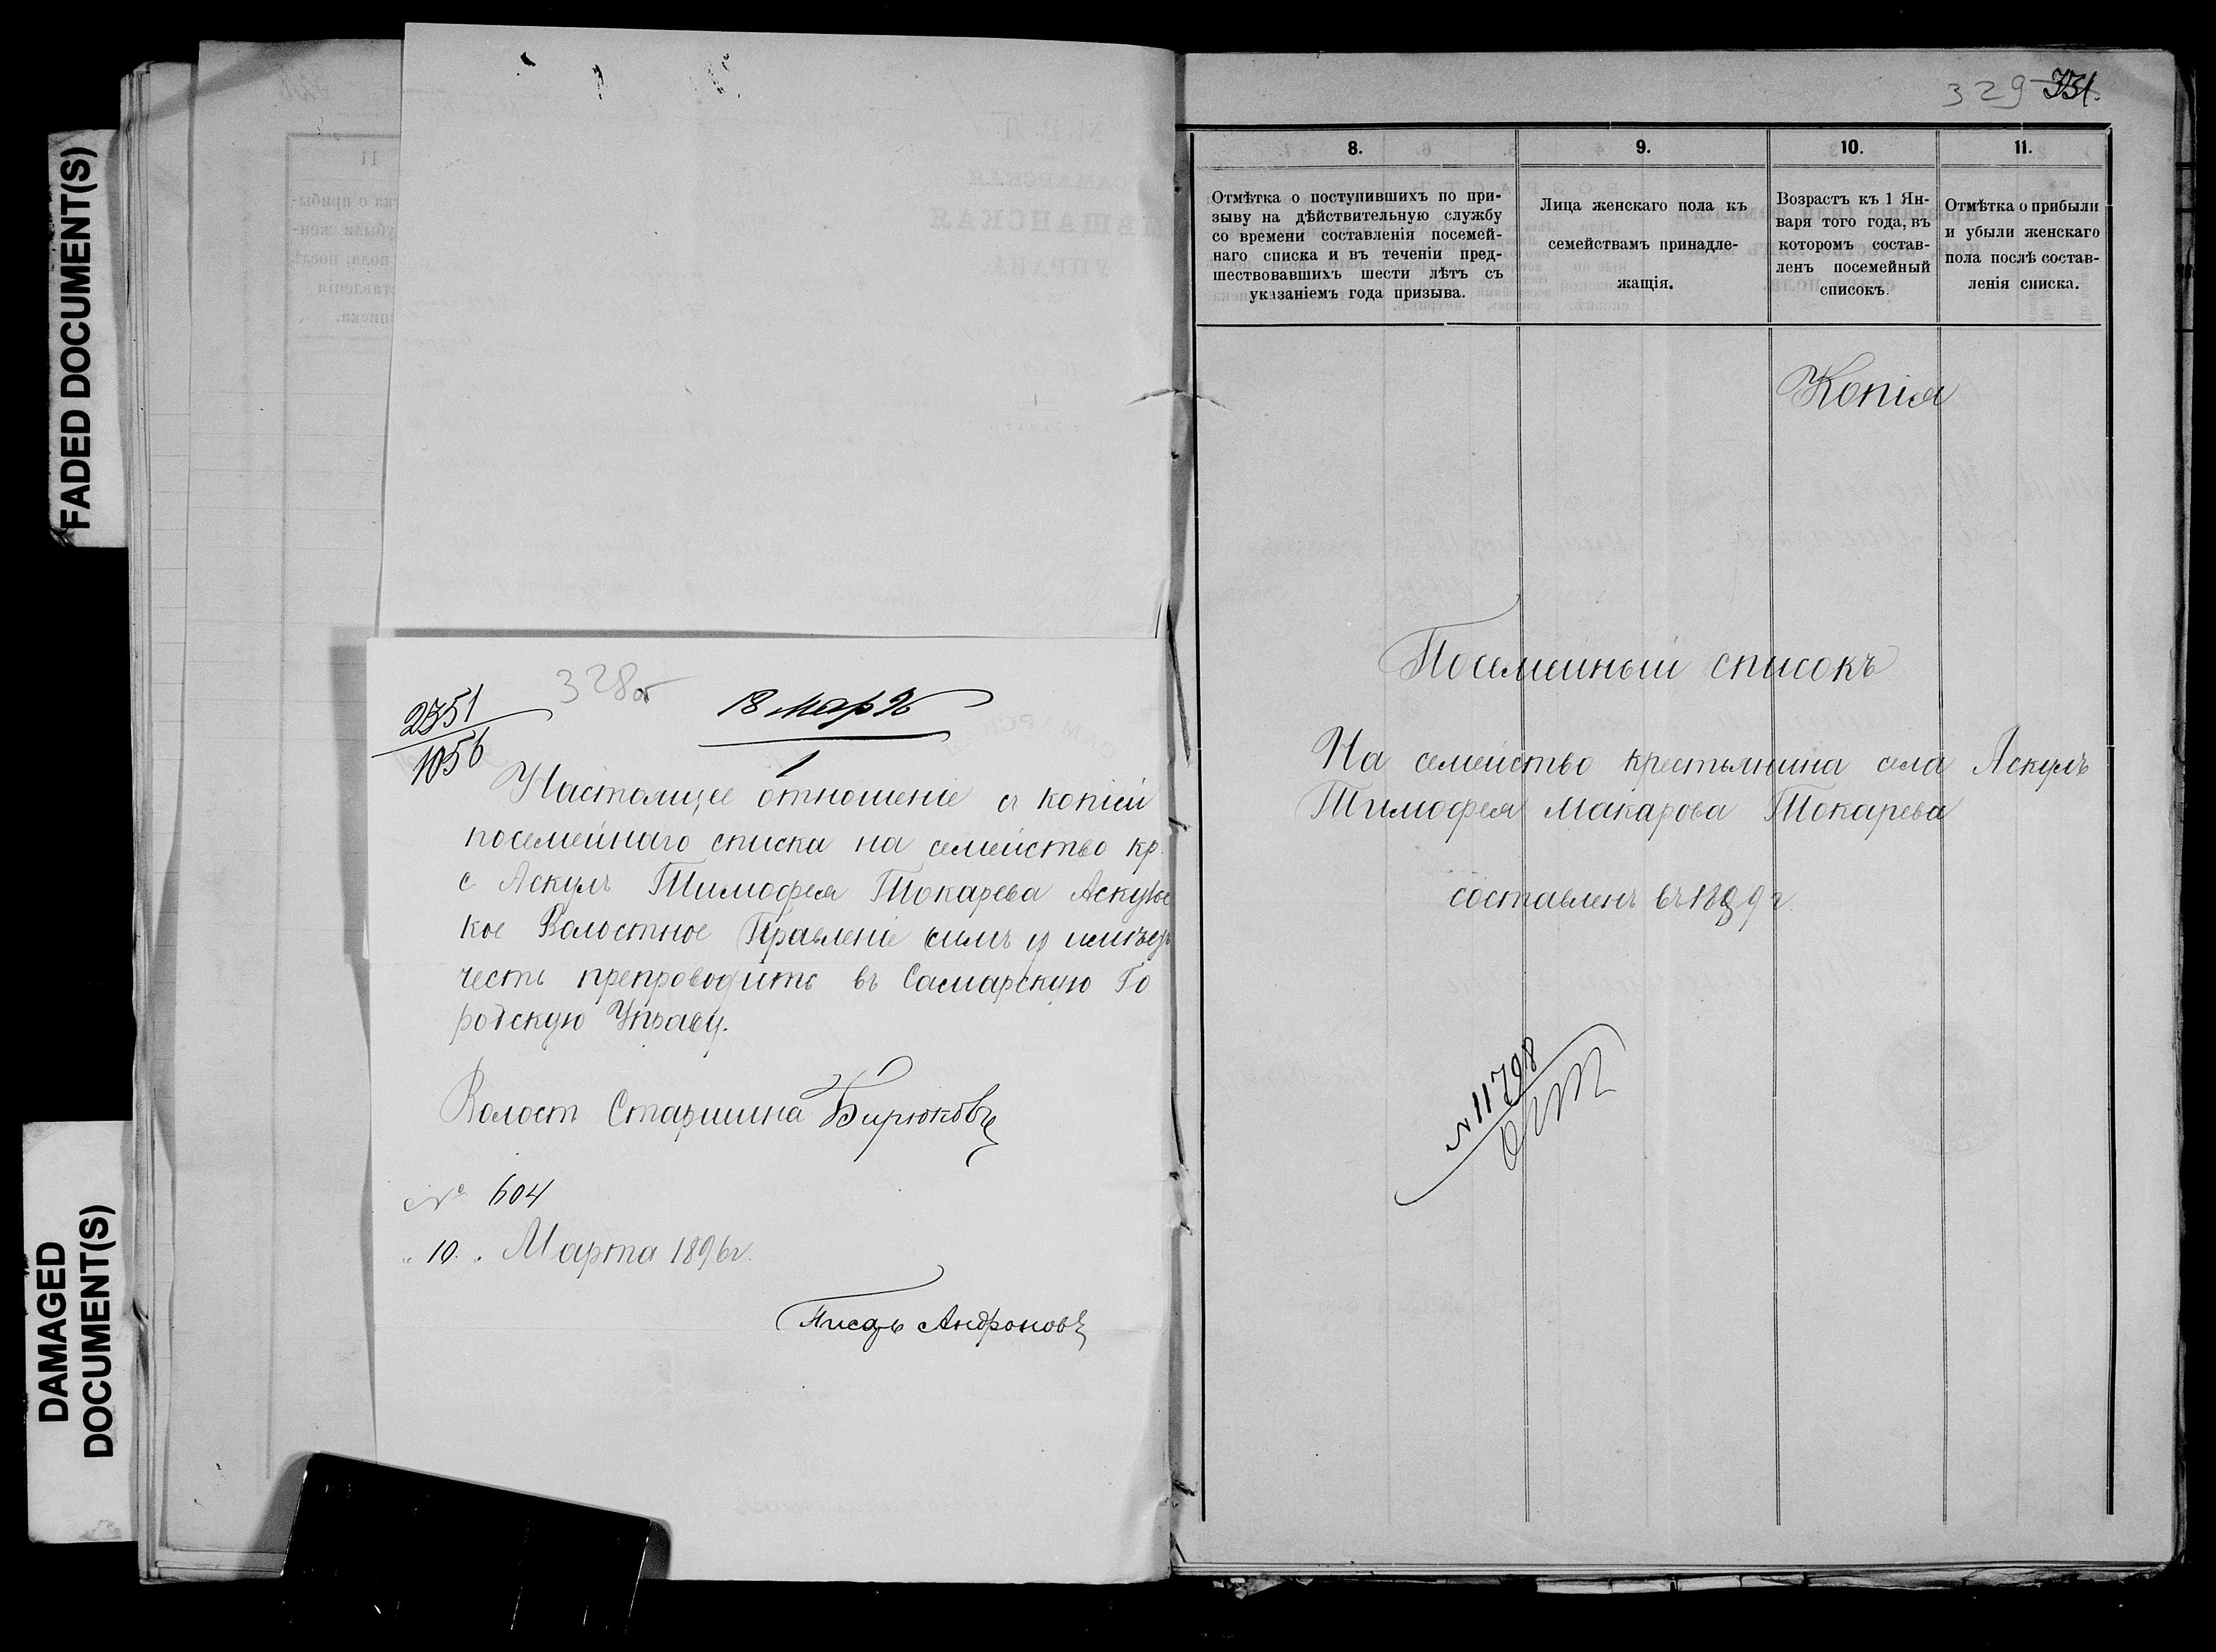 FADED DOCUMENT(S)
DAMAGED
DOCUMENT(S)
328об
2351
1056
18 мар 96
1
Настоящее отношеніе съ копіей
посемейнаго списка на семейство кр.
с Аскулъ Тимофея Токарева Аскульс
кое Волостное Правленіе симъ имѣетъ
честь препроводить въ Самарскую Го
родскую Управу.
Волост Старшина Бирюковъ
№ 604
"10." Марта 1896 г.
Писарь Андроновъ
329 331.
8. 9. 10. 11.
Отмѣтка о поступившихъ по при-
зыву на дѣйствительную службу
со времени составленія посемей-
наго списка и въ теченіи пред-
шествовавшихъ шести лѣтъ съ
указаніемъ года призыва.
Лица женскаго пола къ
семействамъ принадле-
жащія.
Возрастъ къ 1 Ян-
варя того года, въ
которомъ состав-
ленъ посемейный
списокъ.
Отмѣтка о прибыли
и убыли женскаго
пола послѣ состав-
ленія списка.
Копія
Посемейный списокъ
На семейство крестьянина села Аскулъ
Тимофея Макарова Токарева
составленъ въ 1889 г.
№ 11798